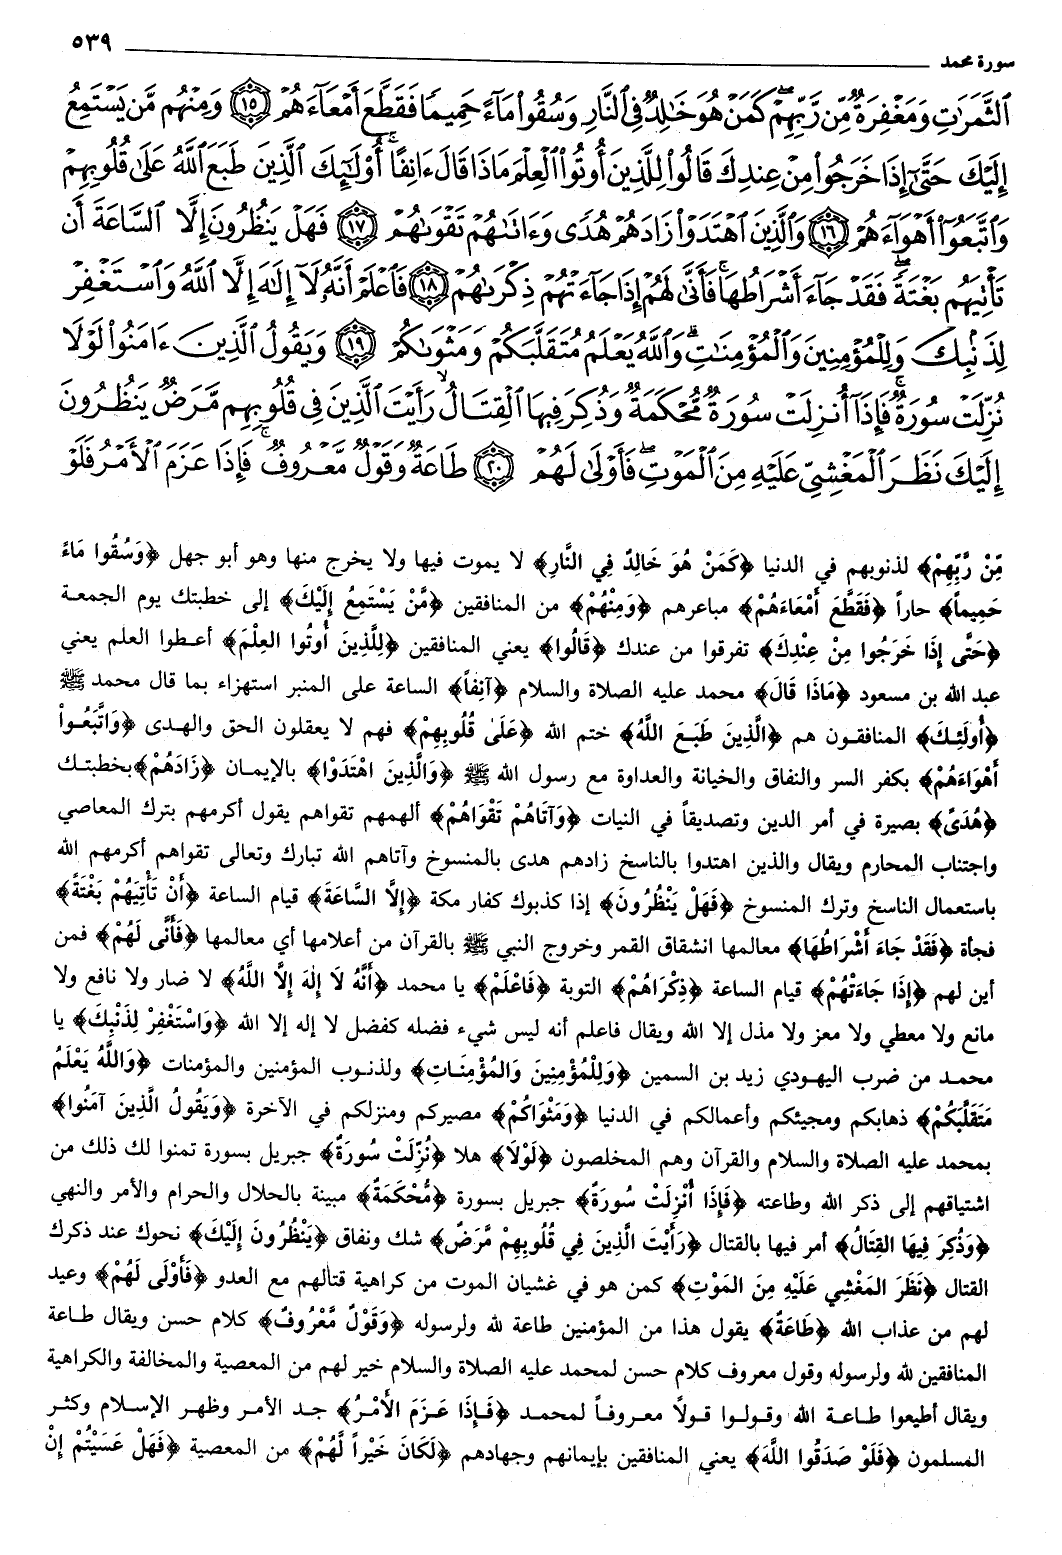 سورة محمد ٥٣٩
ٱلثَّمَرَٰتِ وَمَغْفِرَةٌ مِّن رَّبِّهِمْ ۖ كَمَنْ هُوَ خَٰلِدٌ فِى ٱلنَّارِ وَسُقُوا۟ مَآءً حَمِيمًا فَقَطَّعَ أَمْعَآءَهُمْ ﴿١٥﴾ وَمِنْهُم مَّن يَسْتَمِعُ
إِلَيْكَ حَتَّىٰٓ إِذَا خَرَجُوا۟ مِنْ عِندِكَ قَالُوا۟ لِلَّذِينَ أُوتُوا۟ ٱلْعِلْمَ مَاذَا قَالَ ءَانِفًا ۚ أُو۟لَٰٓئِكَ ٱلَّذِينَ طَبَعَ ٱللَّهُ عَلَىٰ قُلُوبِهِمْ
وَٱتَّبَعُوٓا۟ أَهْوَآءَهُمْ ﴿١٦﴾ وَٱلَّذِينَ ٱهْتَدَوْا۟ زَادَهُمْ هُدًى وَءَاتَىٰهُمْ تَقْوَىٰهُمْ ﴿١٧﴾ فَهَلْ يَنظُرُونَ إِلَّا ٱلسَّاعَةَ أَن
تَأْتِيَهُم بَغْتَةً ۖ فَقَدْ جَآءَ أَشْرَاطُهَا ۚ فَأَنَّىٰ لَهُمْ إِذَا جَآءَتْهُمْ ذِكْرَىٰهُمْ ﴿١٨﴾ فَٱعْلَمْ أَنَّهُۥ لَآ إِلَٰهَ إِلَّا ٱللَّهُ وَٱسْتَغْفِرْ
لِذَنۢبِكَ وَلِلْمُؤْمِنِينَ وَٱلْمُؤْمِنَٰتِ ۗ وَٱللَّهُ يَعْلَمُ مُتَقَلَّبَكُمْ وَمَثْوَىٰكُمْ ﴿١٩﴾ وَيَقُولُ ٱلَّذِينَ ءَامَنُوا۟ لَوْلَا
نُزِّلَتْ سُورَةٌ ۖ فَإِذَآ أُنزِلَتْ سُورَةٌ مُّحْكَمَةٌ وَذُكِرَ فِيهَا ٱلْقِتَالُ ۙ رَأَيْتَ ٱلَّذِينَ فِى قُلُوبِهِم مَّرَضٌ يَنظُرُونَ
إِلَيْكَ نَظَرَ ٱلْمَغْشِىِّ عَلَيْهِ مِنَ ٱلْمَوْتِ ۖ فَأَوْلَىٰ لَهُمْ ﴿٢٠﴾ طَاعَةٌ وَقَوْلٌ مَّعْرُوفٌ ۚ فَإِذَا عَزَمَ ٱلْأَمْرُ فَلَوْ
مِّنْ رَّبِّهِمْ﴾ لذنوبهم في الدنيا ﴿كَمَنْ هُوَ خَالِدٌ فِي النَّارِ﴾ لا يموت فيها ولا يخرج منها وهو أبو جهل ﴿وَسُقُوا مَاءً
حَمِيماً﴾ حاراً ﴿فَقَطَّعَ أَمْعَاءَهُمْ﴾ مباعرهم ﴿وَمِنْهُمْ﴾ من المنافقين ﴿مَّنْ يَسْتَمِعُ إِلَيْكَ﴾ إلى خطبتك يوم الجمعة
﴿حَتَّى إِذَا خَرَجُوا مِنْ عِنْدِكَ﴾ تفرقوا من عندك ﴿قَالُوا﴾ يعني المنافقين ﴿لِلَّذِينَ أُوتُوا العِلْمَ﴾ أعطوا العلم يعني
عبد الله بن مسعود ﴿مَاذَا قَالَ﴾ محمد عليه الصلاة والسلام ﴿آنِفاً﴾ الساعة على المنبر استهزاء بما قال محمد ﷺ
﴿أُولَئِكَ﴾ المنافقون هم ﴿الَّذِينَ طَبَعَ اللَّهُ﴾ ختم الله ﴿عَلَىٰ قُلُوبِهِمْ﴾ فهم لا يعقلون الحق والهدى ﴿وَاتَّبَعُوا
أَهْوَاءَهُمْ﴾ بكفر السر والنفاق والخيانة والعداوة مع رسول الله ﷺ ﴿وَالَّذِينَ اهْتَدَوْا﴾ بالإيمان ﴿زَادَهُمْ﴾ بخطبتك
﴿هُدًى﴾ بصيرة في أمر الدين وتصديقاً في النيات ﴿وَآتَاهُمْ تَقْوَاهُمْ﴾ ألهمهم تقواهم يقول أكرمهم بترك المعاصي
واجتناب المحارم ويقال والذين اهتدوا بالناسخ زادهم هدى بالمنسوخ وآتاهم الله تبارك وتعالى تقواهم أكرمهم الله
باستعمال الناسخ وترك المنسوخ ﴿فَهَلْ يَنْظُرُونَ﴾ إذا كذبوك كفار مكة ﴿إِلَّا السَّاعَةَ﴾ قيام الساعة ﴿أَنْ تَأْتِيَهُمْ بَغْتَةً﴾
فجأة ﴿فَقَدْ جَاءَ أَشْرَاطُهَا﴾ معالمها انشقاق القمر وخروج النبي ﷺ بالقرآن من أعلامها أي معالمها ﴿فَأَنَّى لَهُمْ﴾ فمن
أين لهم ﴿إِذَا جَاءَتْهُمْ﴾ قيام الساعة ﴿ذِكْرَاهُمْ﴾ التوبة ﴿فَاعْلَمْ﴾ يا محمد ﴿أَنَّهُ لَا إِلٰهَ إِلَّا اللَّهُ﴾ لا ضار ولا نافع ولا
مانع ولا معطي ولا معز ولا مذل إلا الله ويقال فاعلم أنه ليس شيء فضله كفضل لا إله إلا الله ﴿وَاسْتَغْفِرْ لِذَنْبِكَ﴾ يا
محمد من ضرب اليهودي زيد بن السمين ﴿وَلِلْمُؤْمِنِينَ وَالمُؤْمِنَاتِ﴾ ولذنوب المؤمنين والمؤمنات ﴿وَاللَّهُ يَعْلَمُ
مُتَقَلَّبَكُمْ﴾ ذهابكم ومجيئكم وأعمالكم في الدنيا ﴿وَمَثْوَاكُمْ﴾ مصيركم ومنزلكم في الآخرة ﴿وَيَقُولُ الَّذِينَ آمَنُوا﴾
بمحمد عليه الصلاة والسلام والقرآن وهم المخلصون ﴿لَوْلَا﴾ هلا ﴿نُزِّلَتْ سُورَةٌ﴾ جبريل بسورة تمنوا لك ذلك من
اشتياقهم إلى ذكر الله وطاعته ﴿فَإِذَا أُنْزِلَتْ سُورَةٌ﴾ جبريل بسورة ﴿مُّحْكَمَةٌ﴾ مبينة بالحلال والحرام والأمر والنهي
﴿وَذُكِرَ فِيهَا القِتَالُ﴾ أمر فيها بالقتال ﴿رَأَيْتَ الَّذِينَ فِي قُلُوبِهِمْ مَّرَضٌ﴾ شك ونفاق ﴿يَنْظُرُونَ إِلَيْكَ﴾ نحوك عند ذكرك
القتال ﴿نَظَرَ المَغْشِي عَلَيْهِ مِنَ المَوْتِ﴾ كمن هو في غشيان الموت من كراهية قتالهم مع العدو ﴿فَأَوْلَى لَهُمْ﴾ وعيد
لهم من عذاب الله ﴿طَاعَةٌ﴾ يقول هذا من المؤمنين طاعة لله ولرسوله ﴿وَقَوْلٌ مَّعْرُوفٌ﴾ كلام حسن ويقال طاعة
المنافقين لله ولرسوله وقول معروف كلام حسن لمحمد عليه الصلاة والسلام خير لهم من المعصية والمخالفة والكراهية
ويقال أطيعوا طاعة الله وقولوا قولاً معروفاً لمحمد ﴿فَإِذَا عَزَمَ الأَمْرُ﴾ جد الأمر وظهر الإسلام وكثر
المسلمون ﴿فَلَوْ صَدَقُوا اللَّهَ﴾ يعني المنافقين بإيمانهم وجهادهم ﴿لَكَانَ خَيْراً لَّهُمْ﴾ من المعصية ﴿فَهَلْ عَسَيْتُمْ إِنْ